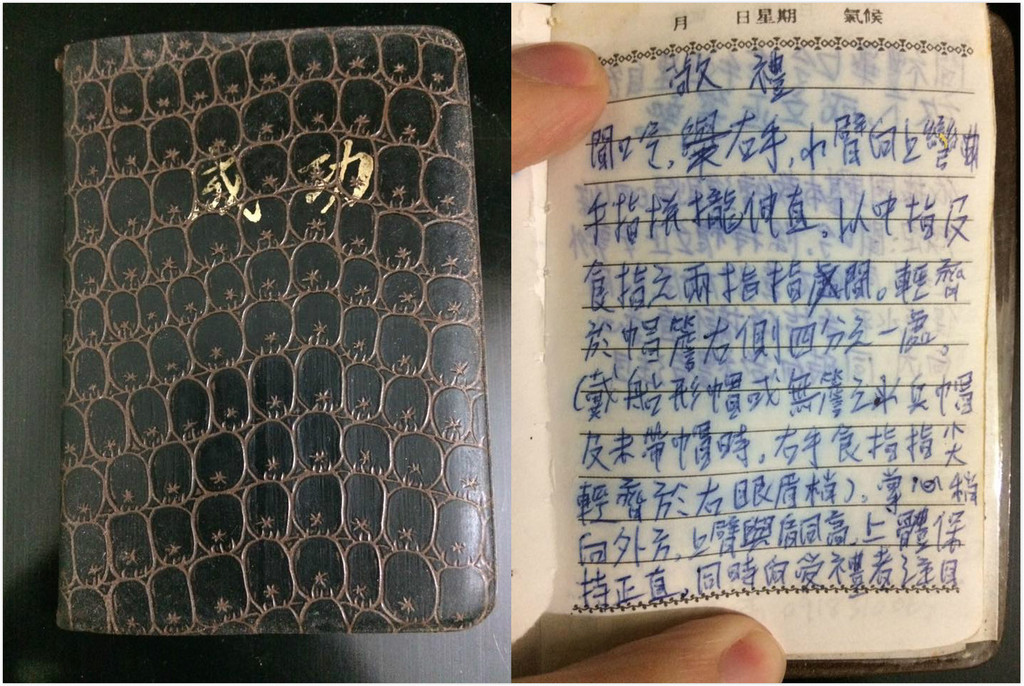 感功
月 日星期 氣候
敬禮
聞口令,舉右手,小臂向上彎曲
手指接攏伸直。以中指及
食指之兩指指處間。輕齊
於帽簷右側四分之一處。
(戴船形帽或無簷之水兵帽
及未帶帽時,右手食指指尖
輕齊於右眼眉梢),掌心稍
向外方,上臂與肩同高,上體保
持正直,同時向受禮者注目